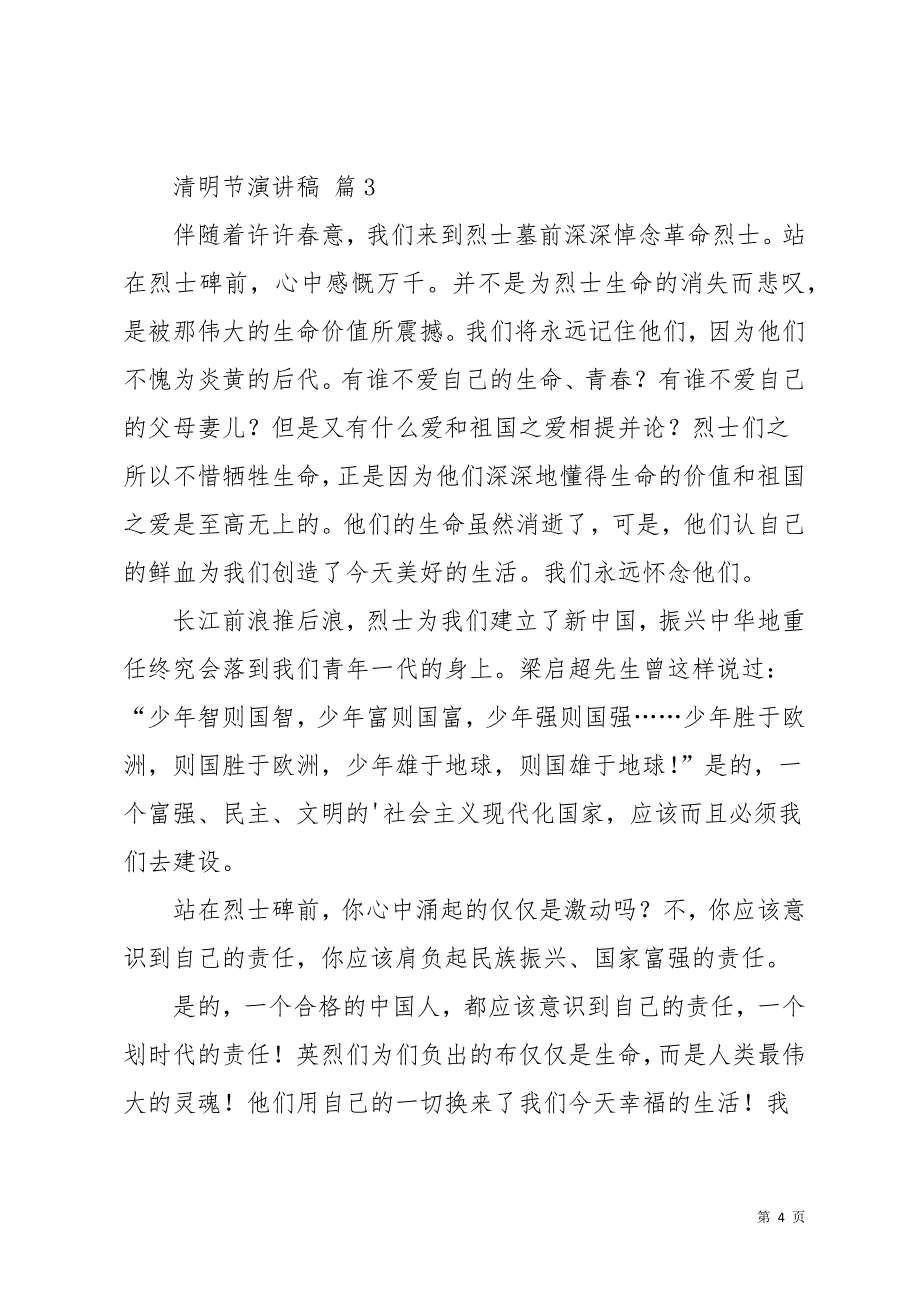 清明节演讲稿 篇3
伴随着许许春意，我们来到烈士墓前深深悼念革命烈士。站
在烈士碑前，心中感慨万千。并不是为烈士生命的消失而悲叹，
是被那伟大的生命价值所震撼。我们将永远记住他们，因为他们
不愧为炎黄的后代。有谁不爱自己的生命、青春？有谁不爱自己
的父母妻儿？但是又有什么爱和祖国之爱相提并论？烈士们之
所以不惜牺牲生命，正是因为他们深深地懂得生命的价值和祖国
之爱是至高无上的。他们的生命虽然消逝了，可是，他们认自己
的鲜血为我们创造了今天美好的生活。我们永远怀念他们。
长江前浪推后浪，烈士为我们建立了新中国，振兴中华地重
任终究会落到我们青年一代的身上。梁启超先生曾这样说过：
“少年智则国智，少年富则国富，少年强则国强……少年胜于欧
洲，则国胜于欧洲，少年雄于地球，则国雄于地球！”是的，一
个富强、民主、文明的'社会主义现代化国家，应该而且必须我
们去建设。
站在烈士碑前，你心中涌起的仅仅是激动吗？不，你应该意
识到自己的责任，你应该肩负起民族振兴、国家富强的责任。
是的，一个合格的中国人，都应该意识到自己的责任，一个
划时代的责任！英烈们为们负出的布仅仅是生命，而是人类最伟
大的灵魂！他们用自己的一切换来了我们今天幸福的生活！我
第 4 页